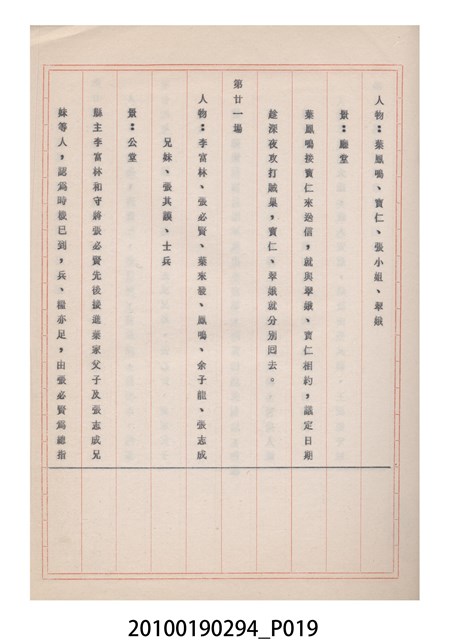 人物：葉鳳鳴、賈仁、張小姐、翠娥
景：廳堂
葉鳳鳴接賈仁來送信，就與翠娥、賈仁相約，議定日期
趁深夜攻打賊巢，賈仁、翠娥就分別回去。
第廿一場
人物：李富林、張必賢、葉來發、鳳鳴、余子龍、張志成
兄妹、張其謨、士兵
景：公堂
縣主李富林和守將張必賢先後接進葉家父子及張志成兄
妹等人，認為時機已到，兵、糧亦足，由張必賢為總指
20100190294_P019